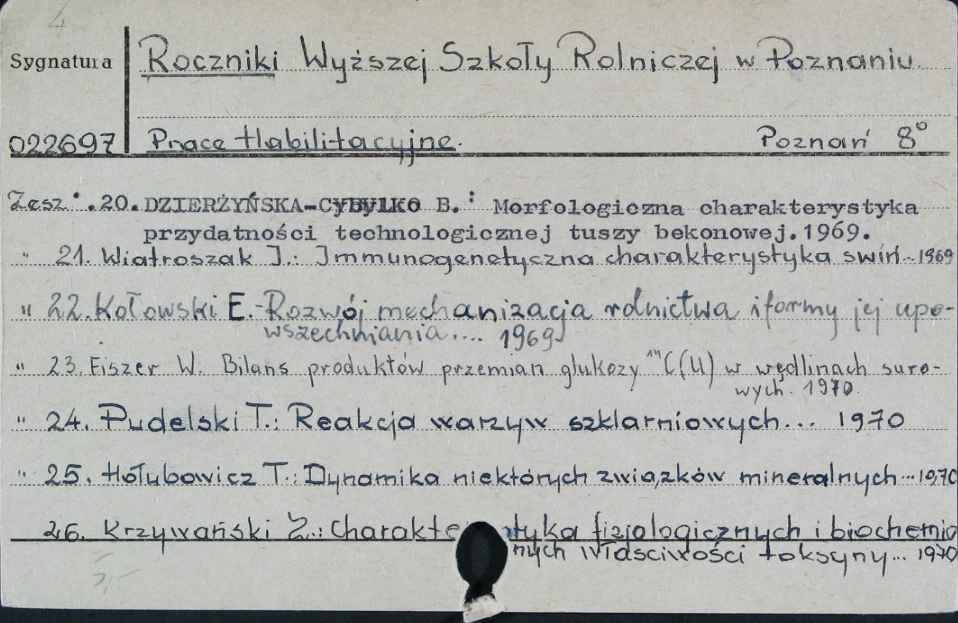 4
Sygnatura
Roczniki Wyższej Szkoły Rolniczej w Poznaniu
022697 Prace Habilitacyjne. Poznań 8°
Zesz. 20. DZIERŻYŃSKA-CYBULKO B.: Morfologiczna charakterystyka
przydatności technologicznej tuszy bekonowej. 1969.
" 21. Wiatroszak J.: Immunogenetyczna charakterystyka świń.. 1969
" 22. Kołowski E.- Rozwój mechanizacja rolnictwa i formy jej upo-
wszechniania.... 1969
" 23. Fiszer W. Bilans produktów przemian glukozy ¹⁴C(U) w wędlinach suro-
wych. 1970.
" 24. Pudelski T.: Reakcja warzyw szklarniowych... 1970
" 25. Hołubowicz T.: Dynamika niektórych związków mineralnych... 1970
26. Krzywański Z.: Charakte tyka fizjologicznych i biochemic
nych właściwości toksyny... 1970